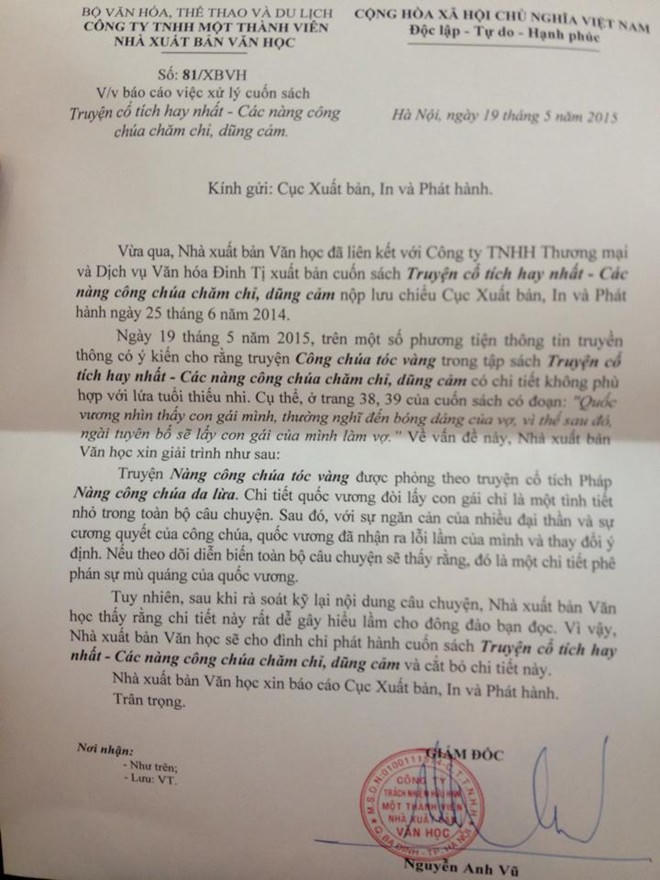 BỘ VĂN HÓA, THỂ THAO VÀ DU LỊCH
CÔNG TY TNHH MỘT THÀNH VIÊN
NHÀ XUẤT BẢN VĂN HỌC
CỘNG HÒA XÃ HỘI CHỦ NGHĨA VIỆT NAM
Độc lập - Tự do - Hạnh phúc
Số: 81/XBVH
V/v báo cáo việc xử lý cuốn sách
Truyện cổ tích hay nhất - Các nàng công
chúa chăm chỉ, dũng cảm.
Hà Nội, ngày 19 tháng 5 năm 2015
Kính gửi: Cục Xuất bản, In và Phát hành.
Vừa qua, Nhà xuất bản Văn học đã liên kết với Công ty TNHH Thương mại
và Dịch vụ Văn hóa Đinh Tị xuất bản cuốn sách Truyện cổ tích hay nhất - Các
nàng công chúa chăm chỉ, dũng cảm nộp lưu chiểu Cục Xuất bản, In và Phát
hành ngày 25 tháng 6 năm 2014.
Ngày 19 tháng 5 năm 2015, trên một số phương tiện thông tin truyền
thông có ý kiến cho rằng truyện Công chúa tóc vàng trong tập sách Truyện cổ
tích hay nhất - Các nàng công chúa chăm chỉ, dũng cảm có chi tiết không phù
hợp với lứa tuổi thiếu nhi. Cụ thể, ở trang 38, 39 của cuốn sách có đoạn: "Quốc
vương nhìn thấy con gái mình, thường nghĩ đến bóng dáng của vợ, vì thế sau đó,
ngài tuyên bố sẽ lấy con gái của mình làm vợ." Về vấn đề này, Nhà xuất bản
Văn học xin giải trình như sau:
Truyện Nàng công chúa tóc vàng được phỏng theo truyện cổ tích Pháp
Nàng công chúa da lừa. Chi tiết quốc vương đòi lấy con gái chỉ là một tình tiết
nhỏ trong toàn bộ câu chuyện. Sau đó, với sự ngăn cản của nhiều đại thần và sự
cương quyết của công chúa, quốc vương đã nhận ra lỗi lầm của mình và thay đổi ý
định. Nếu theo dõi diễn biến toàn bộ câu chuyện sẽ thấy rằng, đó là một chi tiết phê
phán sự mù quáng của quốc vương.
Tuy nhiên, sau khi rà soát kỹ lại nội dung câu chuyện, Nhà xuất bản Văn
học thấy rằng chi tiết này rất dễ gây hiểu lầm cho đông đảo bạn đọc. Vì vậy,
Nhà xuất bản Văn học sẽ cho đình chỉ phát hành cuốn sách Truyện cổ tích hay
nhất - Các nàng công chúa chăm chỉ, dũng cảm và cắt bỏ chi tiết này.
Nhà xuất bản Văn học xin báo cáo Cục Xuất bản, In và Phát hành.
Trân trọng.
Nơi nhận:
- Như trên;
- Lưu: VT.
GIÁM ĐỐC
CÔNG TY
TRÁCH NHIỆM HỮU HẠN
MỘT THÀNH VIÊN
NHÀ XUẤT BẢN
VĂN HỌC
Q. BA ĐÌNH - TP. HÀ NỘI
Nguyễn Anh Vũ